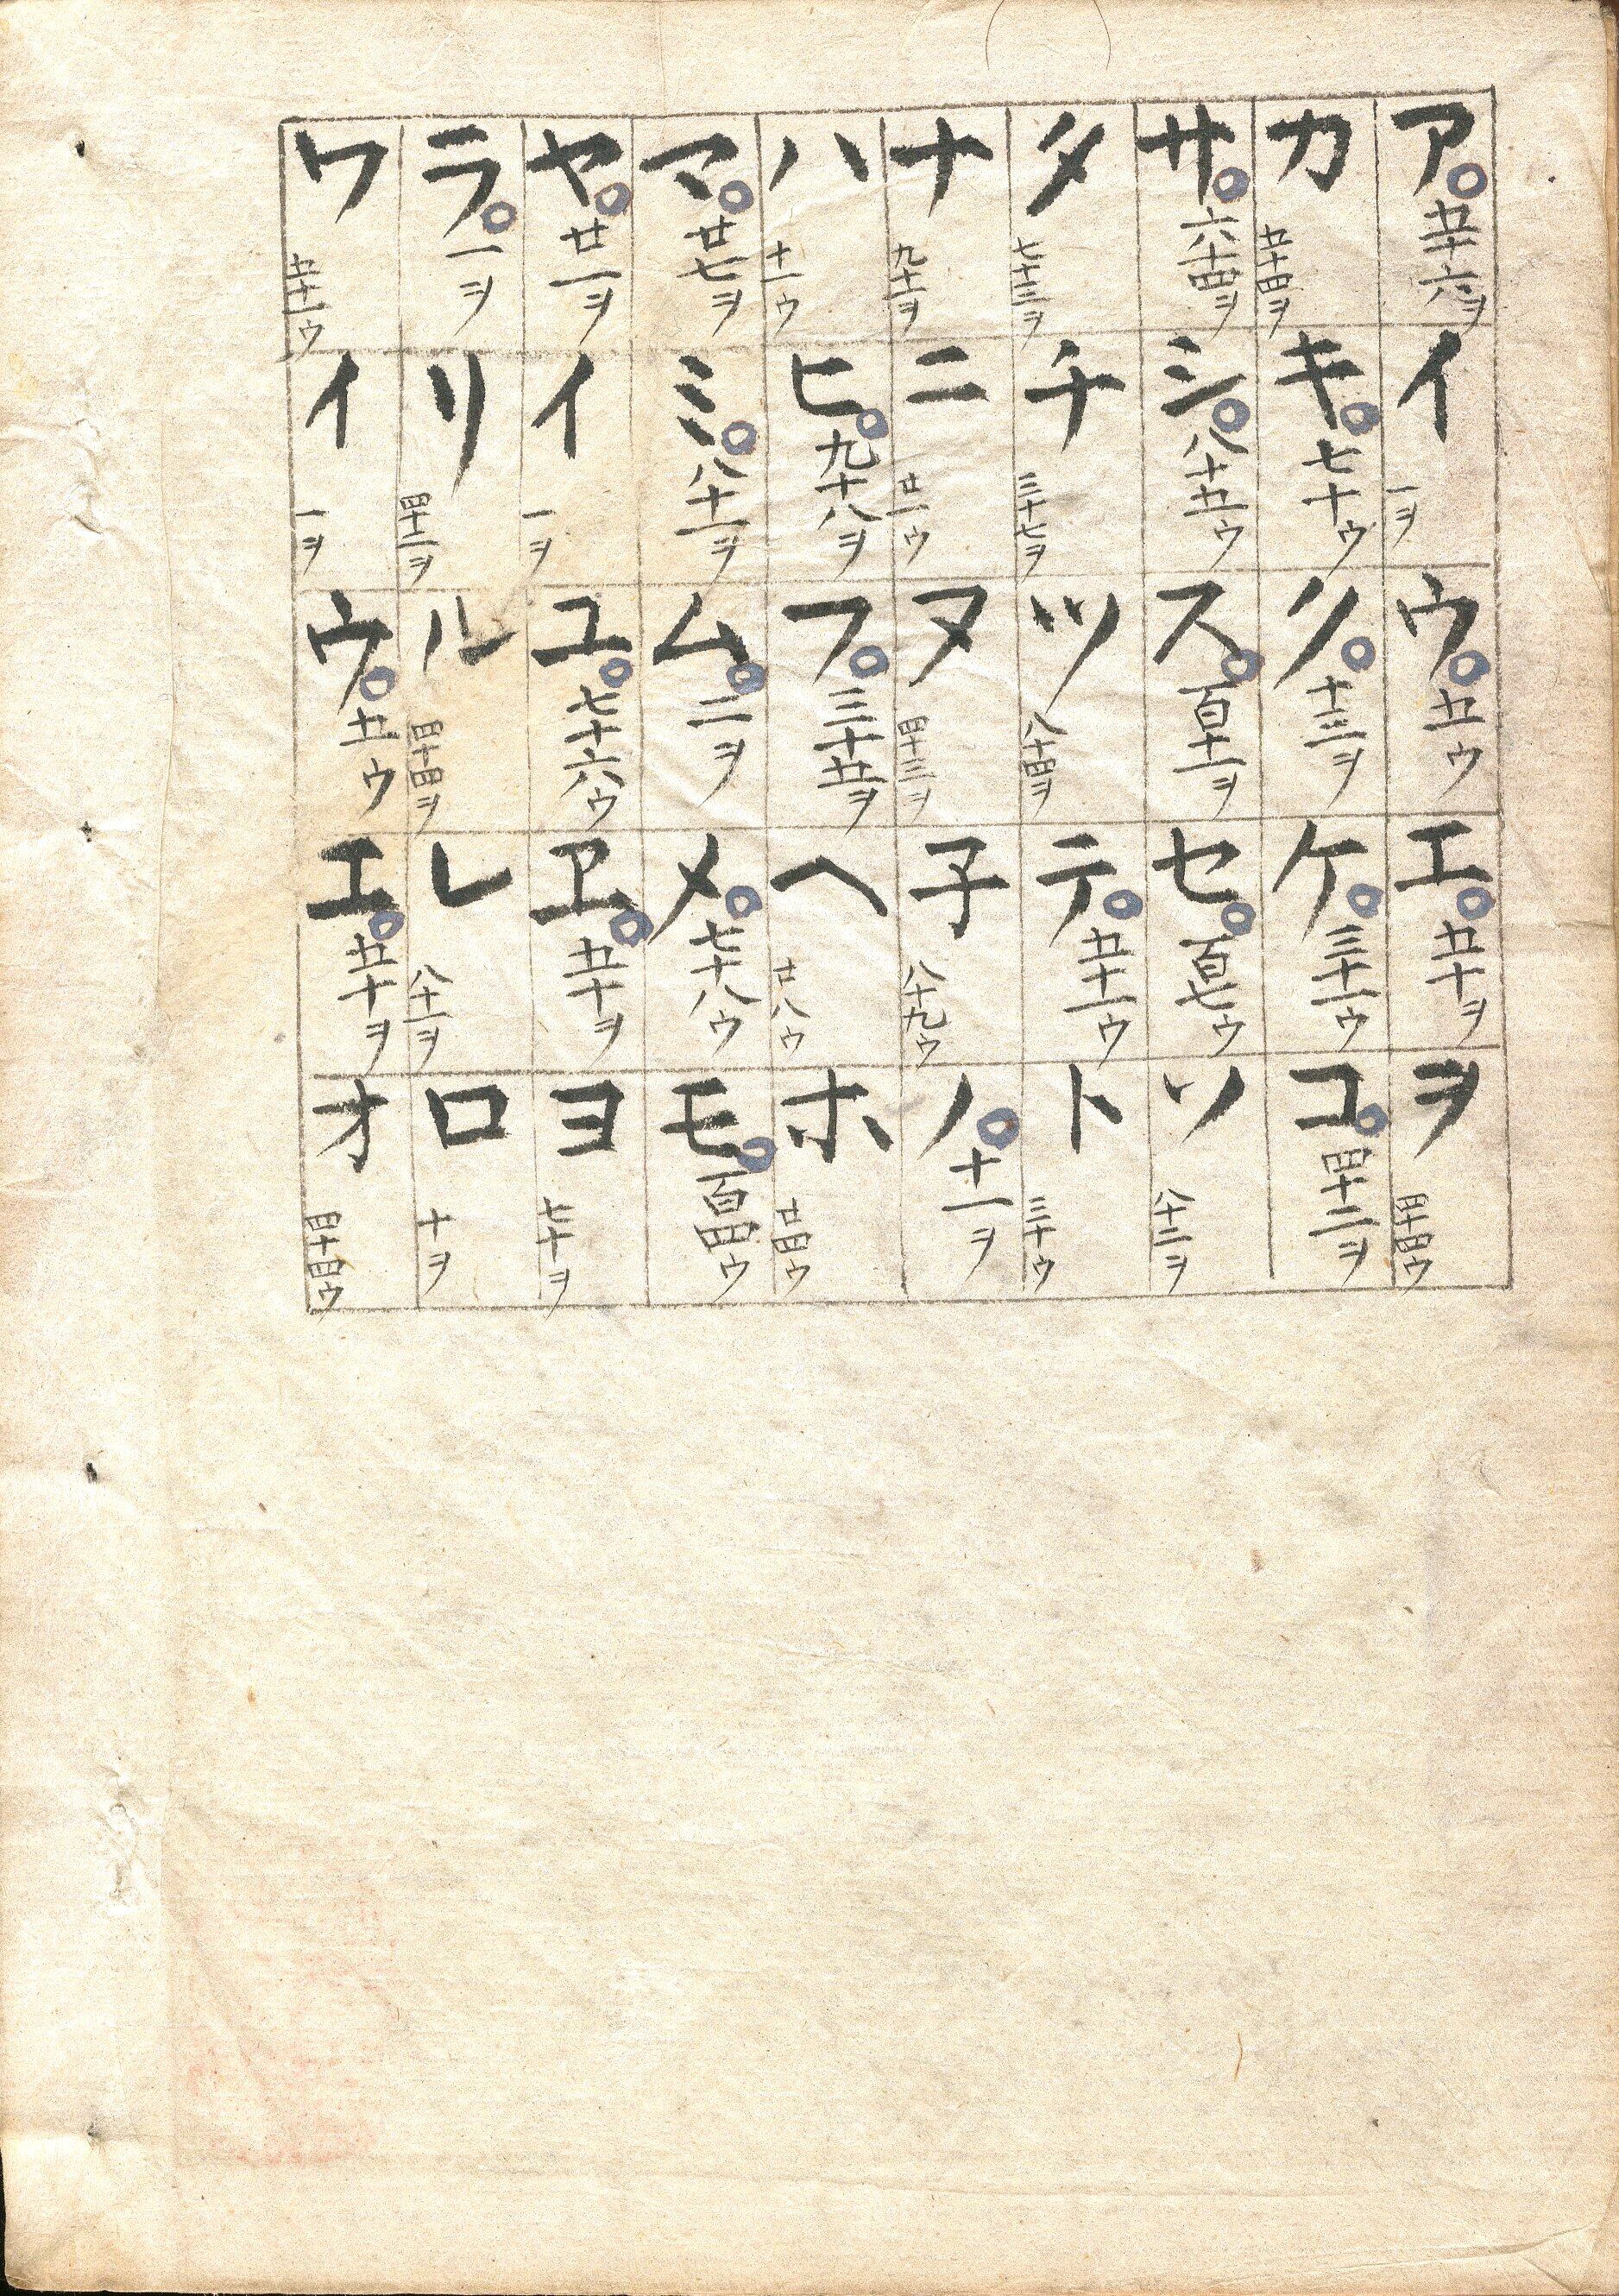 ア○五十六ヲ イ一ヲ ウ○五ウ エ○五十ヲ ヲ四十四ウ
カ五十四ヲ キ○七十ウ ク○十三ヲ ケ○三十一ウ コ○四十二ヲ
サ○六十四ヲ シ○八十五ウ ス○百十一ヲ セ○百七ウ ソ八十二ヲ
タ七十三ヲ チ三十七ヲ ツ八十四ヲ テ○五十一ウ ト三十ウ
ナ九十一ヲ ニ廿一ウ ヌ四十三ヲ 子八十九ウ ノ○十一ヲ
ハ十一ウ ヒ○九十八ヲ フ○三十五ヲ ヘ廿八ウ ホ廿四ウ
マ○廿七ヲ ミ○八十一ヲ ム○二ヲ メ○七十八ウ モ○百四ウ
ヤ○廿一ヲ イ一ヲ ユ○七十六ウ ヱ○五十ヲ ヨ七十ヲ
ラ○一ヲ リ四十二ヲ ル四十四ヲ レ八十一ヲ ロ十ヲ
ワ五十一ウ イ一ヲ ウ○五ウ エ○五十ヲ オ四十四ウ